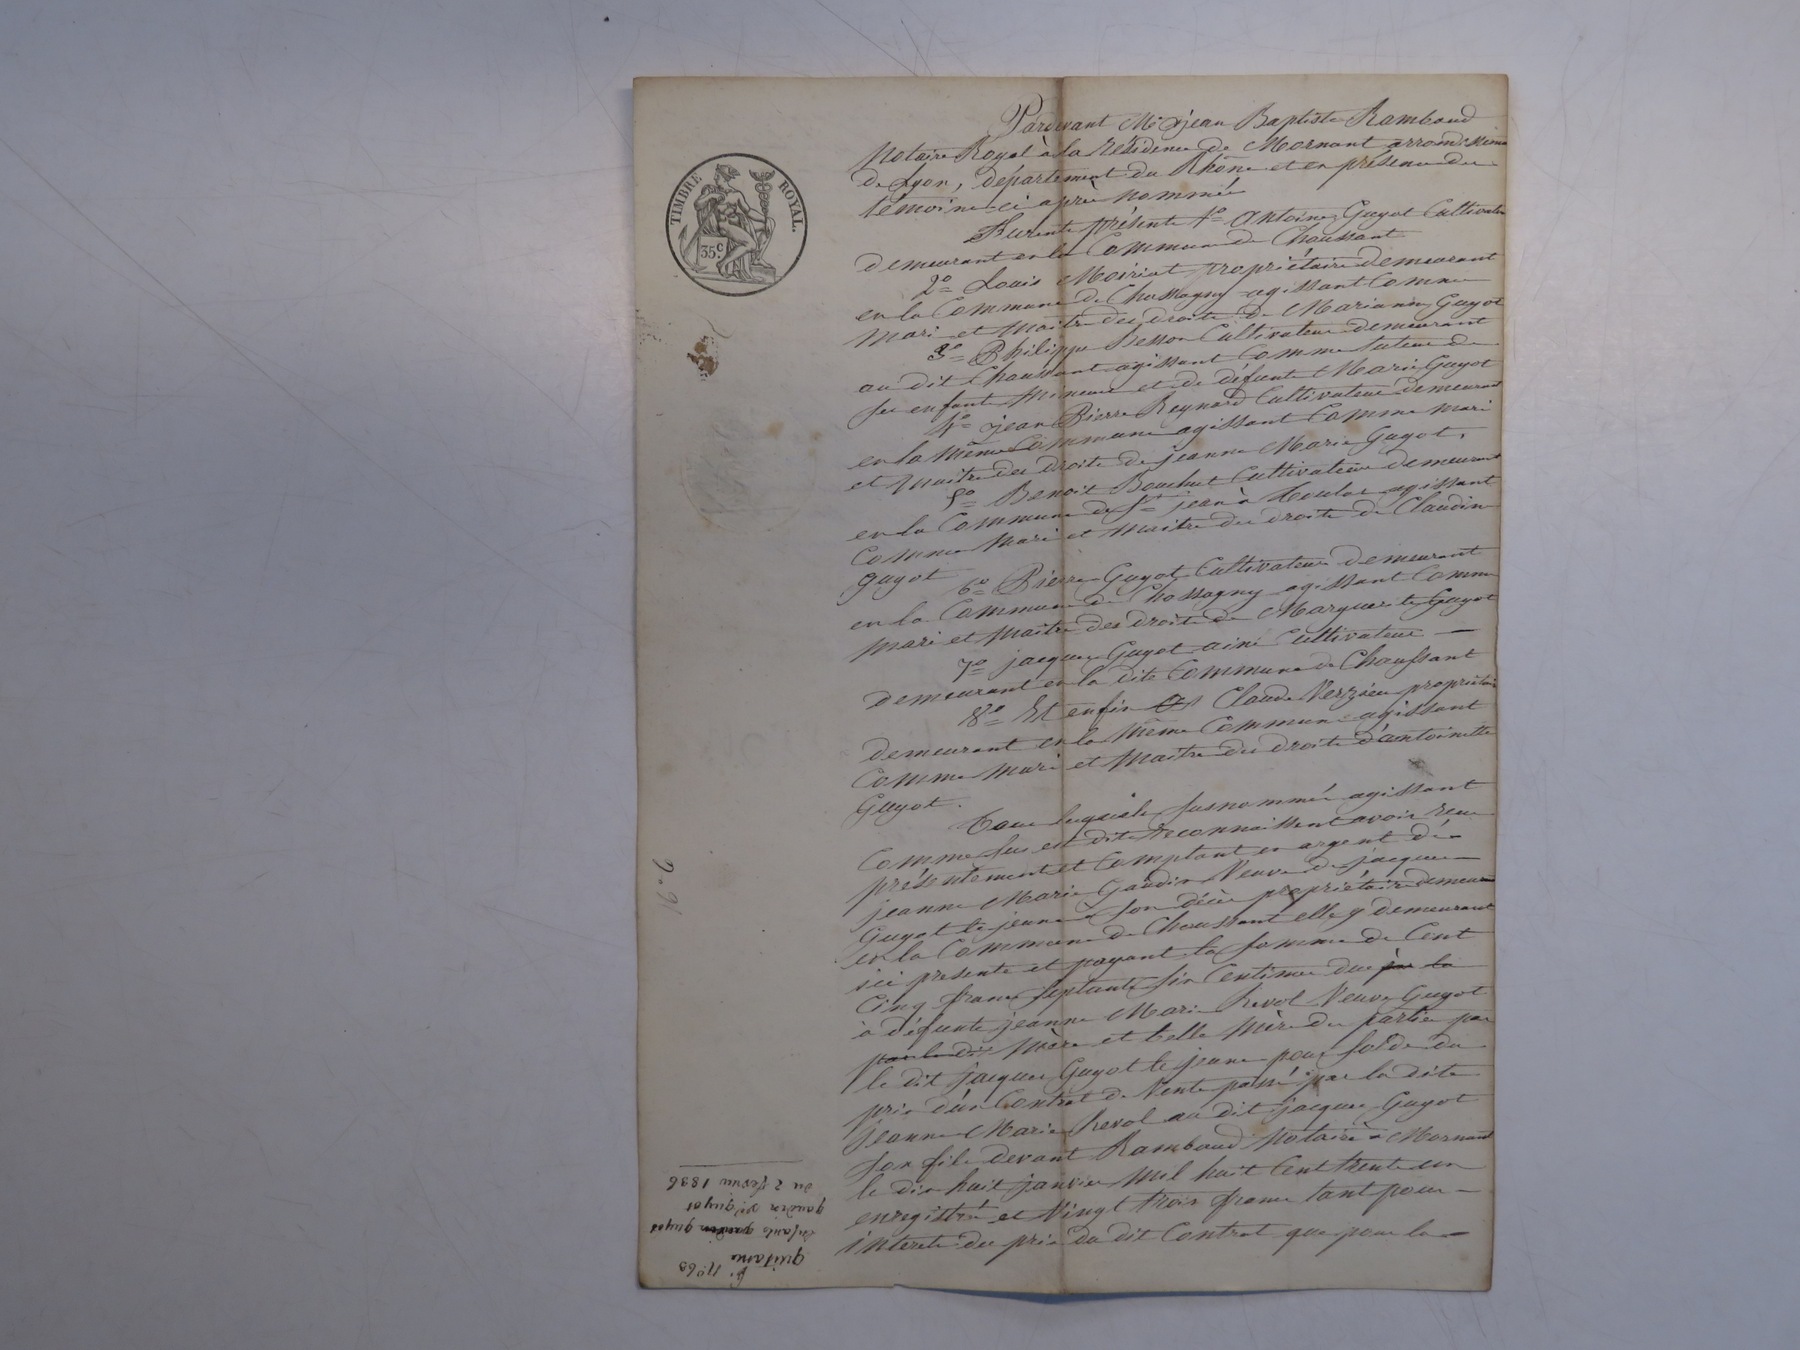 TIMBRE ROYAL.
35 c.
Pardevant Me jean Baptiste Rambaud
Notaire Royal à la Résidence de Mornant arrondissement
de Lyon, département du Rhône et en présence des
témoins ci après nommés
Furent présents 1o Antoine Guyot Cultivateur
demeurant en la Commune de Chaussant
2o Louis Moiriat propriétaire demeurant
en la Commune de Chassagny agissant Comme
Mari et Maitre des droits de Marianne Guyot
3o Philippe Besson Cultivateur demeurant
au dit Chaussant agissant Comme tuteur de
ses enfants Mineurs et de défunte Marie Guyot
4o jean Pierre Reynard Cultivateur demeurant
en la même Commune agissant Comme Mari
et Maitre des droits de jeanne Marie Guyot,
5o Benoit Bouchut Cultivateur demeurant
en la Commune de St jean à Toulas agissant
Comme Mari et Maitre des droits de Claudine
Guyot
6o Pierre Guyot Cultivateur demeurant
en la Commune de Chassagny agissant Comme
Mari et Maitre des droits de Marguerite Guyot
7o jacques Guyot ainé Cultivateur
demeurant en la dite Commune de Chaussant
8o Et enfin Claude Verzieu propriétaire
demeurant en la même Commune agissant
Comme Mari et Maitre des droits d'antoinette
Guyot.
Tous lesquels susnommés agissant
Comme sus est dit reconnaissent avoir reçu
présentement et Comptant en argent de
jeanne Marie Gaudin Veuve de jacques
Guyot le jeune à son décès propriétaire demeurant
en la Commune de Chaussant elle y demeurant
ici presente et payant la somme de Cent
Cinq francs septante six Centimes due par la
à défunte jeanne Marie Revol Veuve Guyot
par le dit Mère et belle Mère des parties par
le dit Jacques Guyot le jeune pour solde du
prix d'un Contrat de Vente passé par la dite
jeanne Marie Revol au dit jacques Guyot
son fils devant Rambaud Notaire à Mornant
le dix huit janvier Mil huit Cent trente un
enregistré et Vingt trois francs tant pour
intérêts du prix du dit Contrat que pour la
No 60
quitance
enfants gaudin guyot
gaudin ve guyot
du 2 fevrier 1836